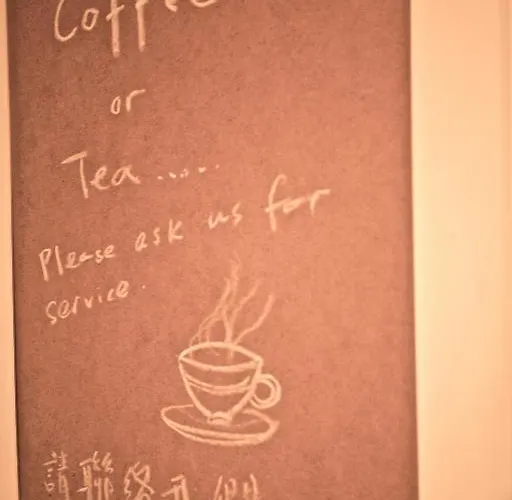 Coffee
or
Tea.....
Please ask us for
service.
請聯絡我們